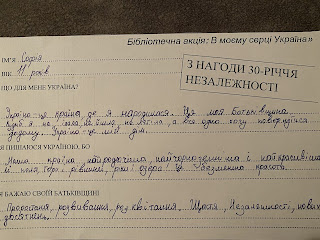 Бібліотечна акція: В моєму серці Україна»
ІМ'Я Софія
ВІК 11 років
З НАГОДИ 30-РІЧЧЯ
НЕЗАЛЕЖНОСТІ
ЩО ДЛЯ МЕНЕ УКРАЇНА?
Україна - це країна де я народилася. Це моя Батьківщина.
Куди б я не їхала, не йшла, не летіла, а все одно хочу повернутися
додому. Україна - це мій дім.
ПИШАЮСЯ УКРАЇНОЮ, БО
Наша країна найрозкішна, і найкрасивіша
її поля, гори і рівнини, ріки і озера! Це красота.
Я БАЖАЮ СВОЇЙ БАТЬКІВЩИНІ
Процвітання, розвивання, розквітання. Щастя, Незалежності, нових
досягнень.